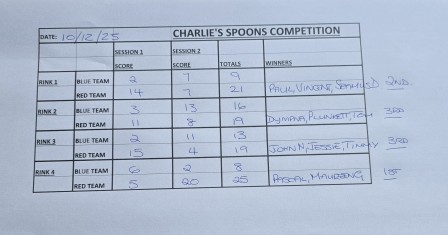 DATE: 10/12/25 CHARLIE'S SPOONS COMPETITION
SESSION 1 SESSION 2
SCORE SCORE TOTALS WINNERS
RINK 1 BLUE TEAM 2 7 9
RED TEAM 14 7 21 PAUL, VINCENT, 2ND
RINK 2 BLUE TEAM 3 13 16
RED TEAM 11 8 19 DYMPNA, PLUNKETT, TOM 3RD
RINK 3 BLUE TEAM 2 11 13
RED TEAM 15 4 19 JOHN N, JESSIE, TIMMY 3RD
RINK 4 BLUE TEAM 6 2 8
RED TEAM 5 20 25 PASCAL, MAUREEN G 1ST